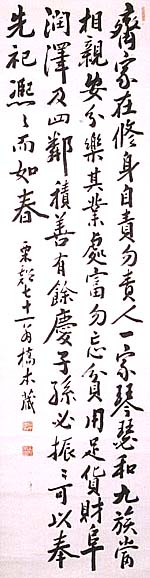 齊家在修身自責勿責人一家琴瑟和九族常
相親安分樂其業處富勿忘貧用足貨財阜
潤澤及四鄰積善有餘慶子孫必振〻可以奉
先祀凞〻而如春
七十一翁橋本藏